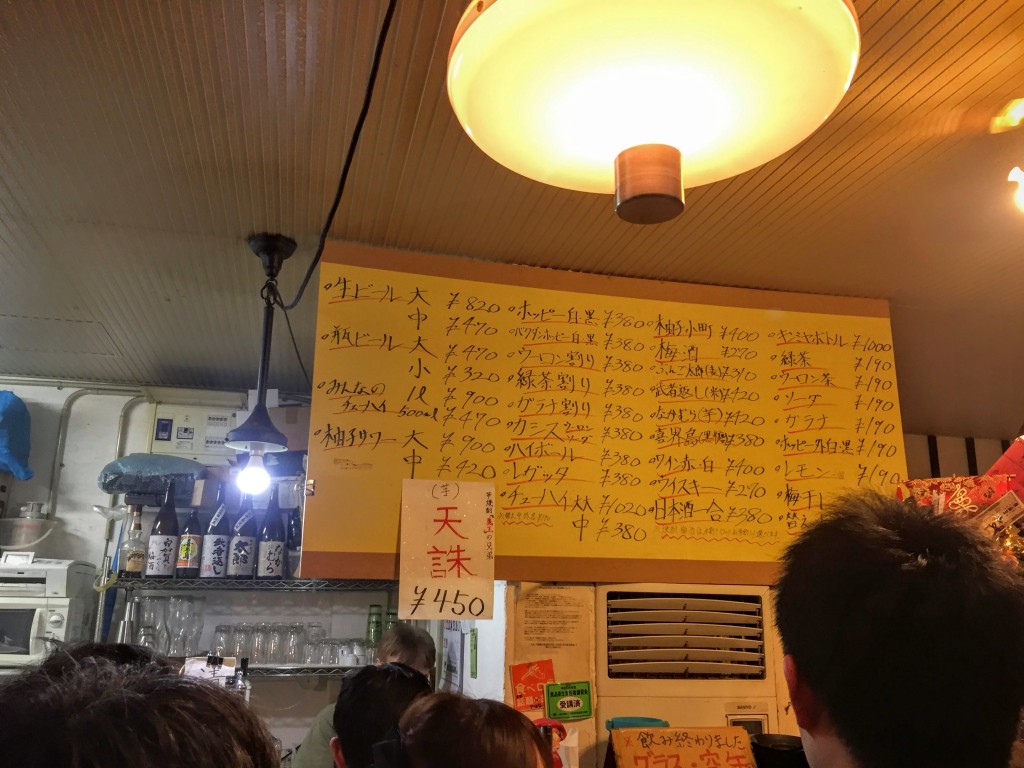 生ビール 大 ¥820
中 ¥470
瓶ビール 大 ¥470
小 ¥320
みんなの
チューハイ
1ℓ ¥900
500mℓ ¥470
柚子サワー 大 ¥900
中 ¥420
ホッピー白黒 ¥380
バクダンホッピー白黒 ¥380
ウーロン割り ¥380
緑茶割り ¥380
ガラナ割り ¥380
カシス ウーロン
ソーダ ¥380
ハイボール ¥380
レゲッタ ¥380
チューハイ 大 ¥1020
中 ¥380
柚子小町 ¥400
梅酒 ¥270
武者返し(米) ¥420
なかむら(芋) ¥420
喜界島(黒糖) ¥380
ワイン赤・白 ¥400
ウイスキー ¥270
日本酒一合 ¥380
キンミヤボトル ¥1000
緑茶 ¥190
ウーロン茶 ¥190
ソーダ ¥190
ガラナ ¥190
ホッピー外白黒 ¥190
レモン ¥190
梅干し
(芋)
天誅
¥450
武者返し
なかむら
食べロ
受講済
※飲み終わりました
グラス・空